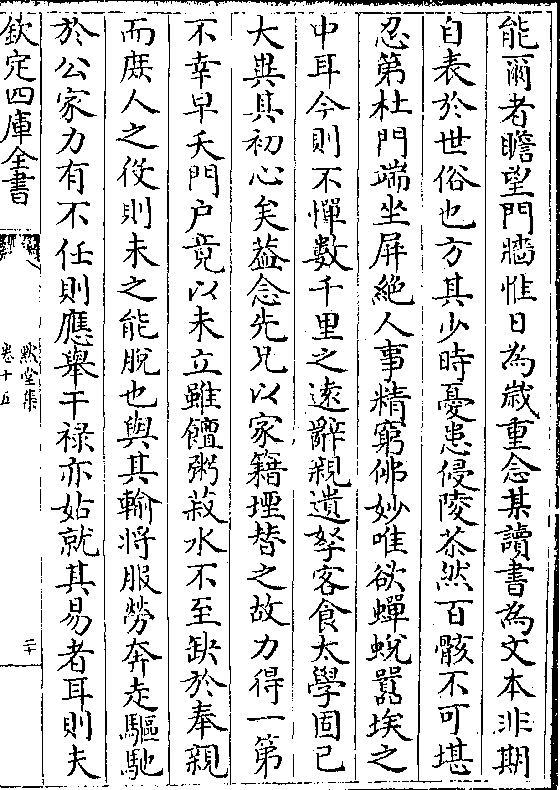 能爾者瞻望門牆惟日為嵗重念某讀書為文本非期
自表於世俗也方其少時憂患侵陵苶然百骸不可堪
忍第杜門端坐屏絶人事精窮佛妙唯欲蟬蛻囂埃之
中耳今則不憚數千里之遠辭親遺孥客食太學固已
大異其初心矣葢念先兄以家籍堙替之故力得一第
不幸早夭門户竟以未立雖饘粥菽水不至缺於奉親
而庶人之役則未之能脫也與其輸將服勞奔走驅馳
於公家力有不任則應舉干禄亦姑就其易者耳則夫
欽定四庫全書
默堂集
卷十五
二十